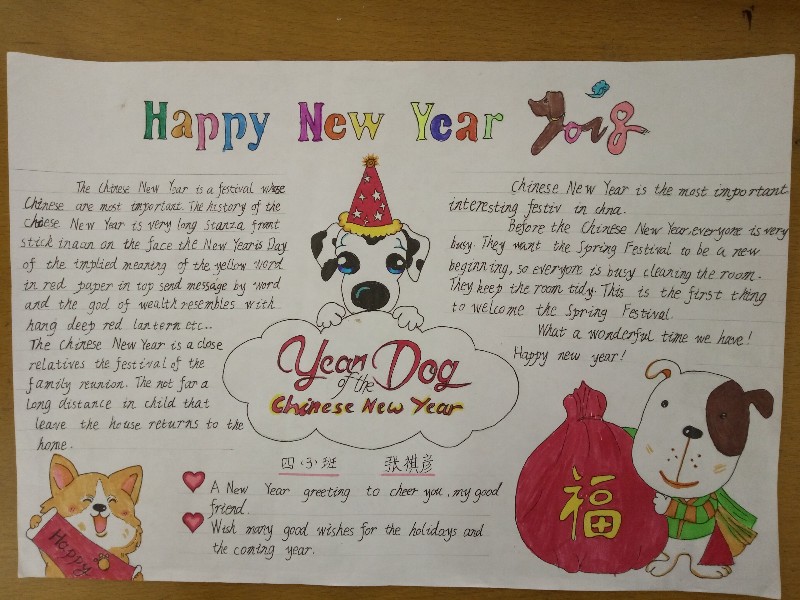 Happy New Year 2018
The Chinese New Year is a festival whose
Chinese are most important. The history of the
Chinese New Year is very long Stanza front
stick inaon on the face the New Year's Day
of the implied meaning of the yellow word
in red paper in top send message by word
and the god of wealth resembles with
hang deep red lantern etc..
The Chinese New Year is a close
relatives the festival of the
family reunion. The not far a
long distance in child that
leave the house returns to the
home.
Chinese New Year is the most important
interesting festiv in chna.
Before the Chinese New Year, everyone is very
busy. They want the Spring Festival to be a new
beginning, so everyone is busy cleaning the room.
They keep the room tidy. This is the first thing
to welcome the Spring Festival.
What a wonderful time we have!
Happy new year!
Year Dog
of the
Chinese New Year
四(3)班 张祺彦
A New Year greeting to cheer you, my good
friend.
Wish many good wishes for the holidays and
the coming year.
Happy
福